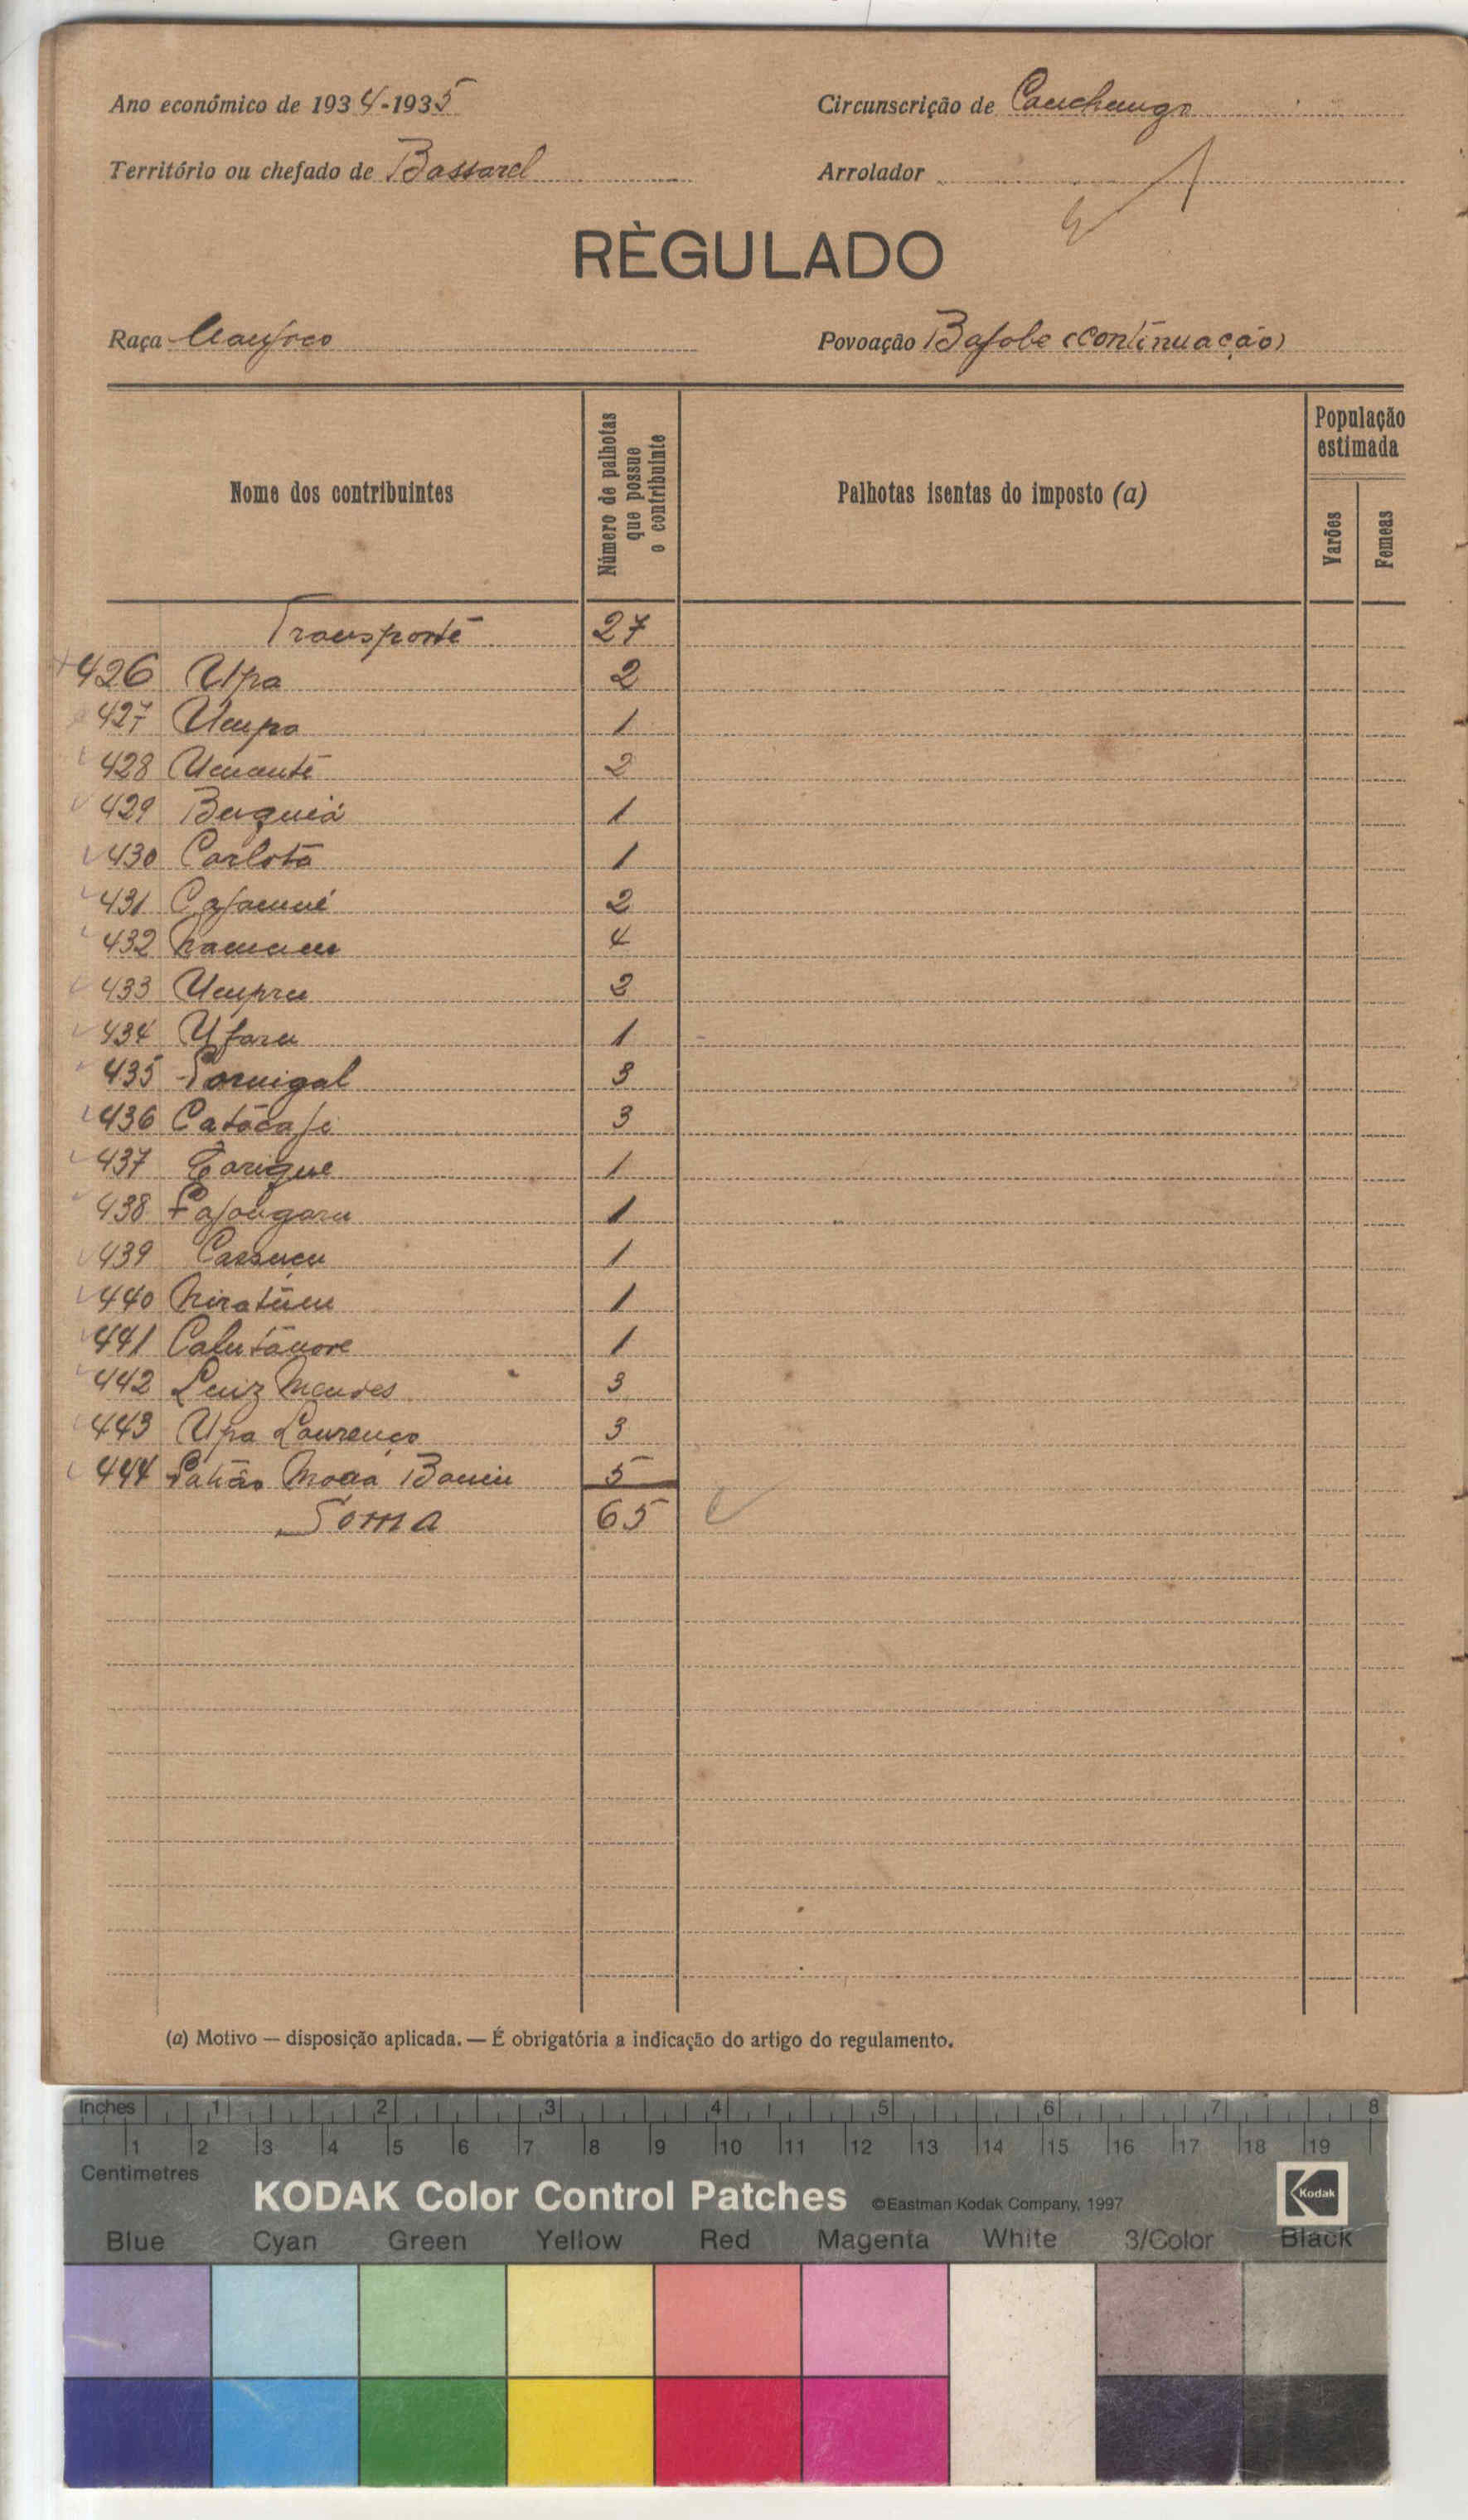 Ano económico de 1934-1935
Circunscrição de Canchungo
Território ou chefado de Bassarel
Arrolador
RÈGULADO
Raça Manjaco
Povoação Bajobe (continuação)
Nome dos contribuintes
Número de palhotas que possue o contribuinte
Palhotas isentas do imposto (a)
População estimada
Varões
Femeas
Transporte 27
426 Upa 2
427 Ucupa 1
428 2
429 Buquiá 1
430 Carlota 1
431 2
432 4
433 2
434 Ufaru 1
435 3
436 Catócaji 3
437 1
438 1
439 Cassucu 1
440 1
441 1
442 Luiz Mendes 3
443 Upa Lourenço 3
444 5
Soma 65
(a) Motivo — disposição aplicada. — É obrigatória a indicação do artigo do regulamento.
Inches 1 2 3 4 5 6 7 8
1 2 3 4 5 6 7 8 9 10 11 12 13 14 15 16 17 18 19
Centimetres
KODAK Color Control Patches ©Eastman Kodak Company, 1997 Kodak
Blue Cyan Green Yellow Red Magenta White 3/Color Black